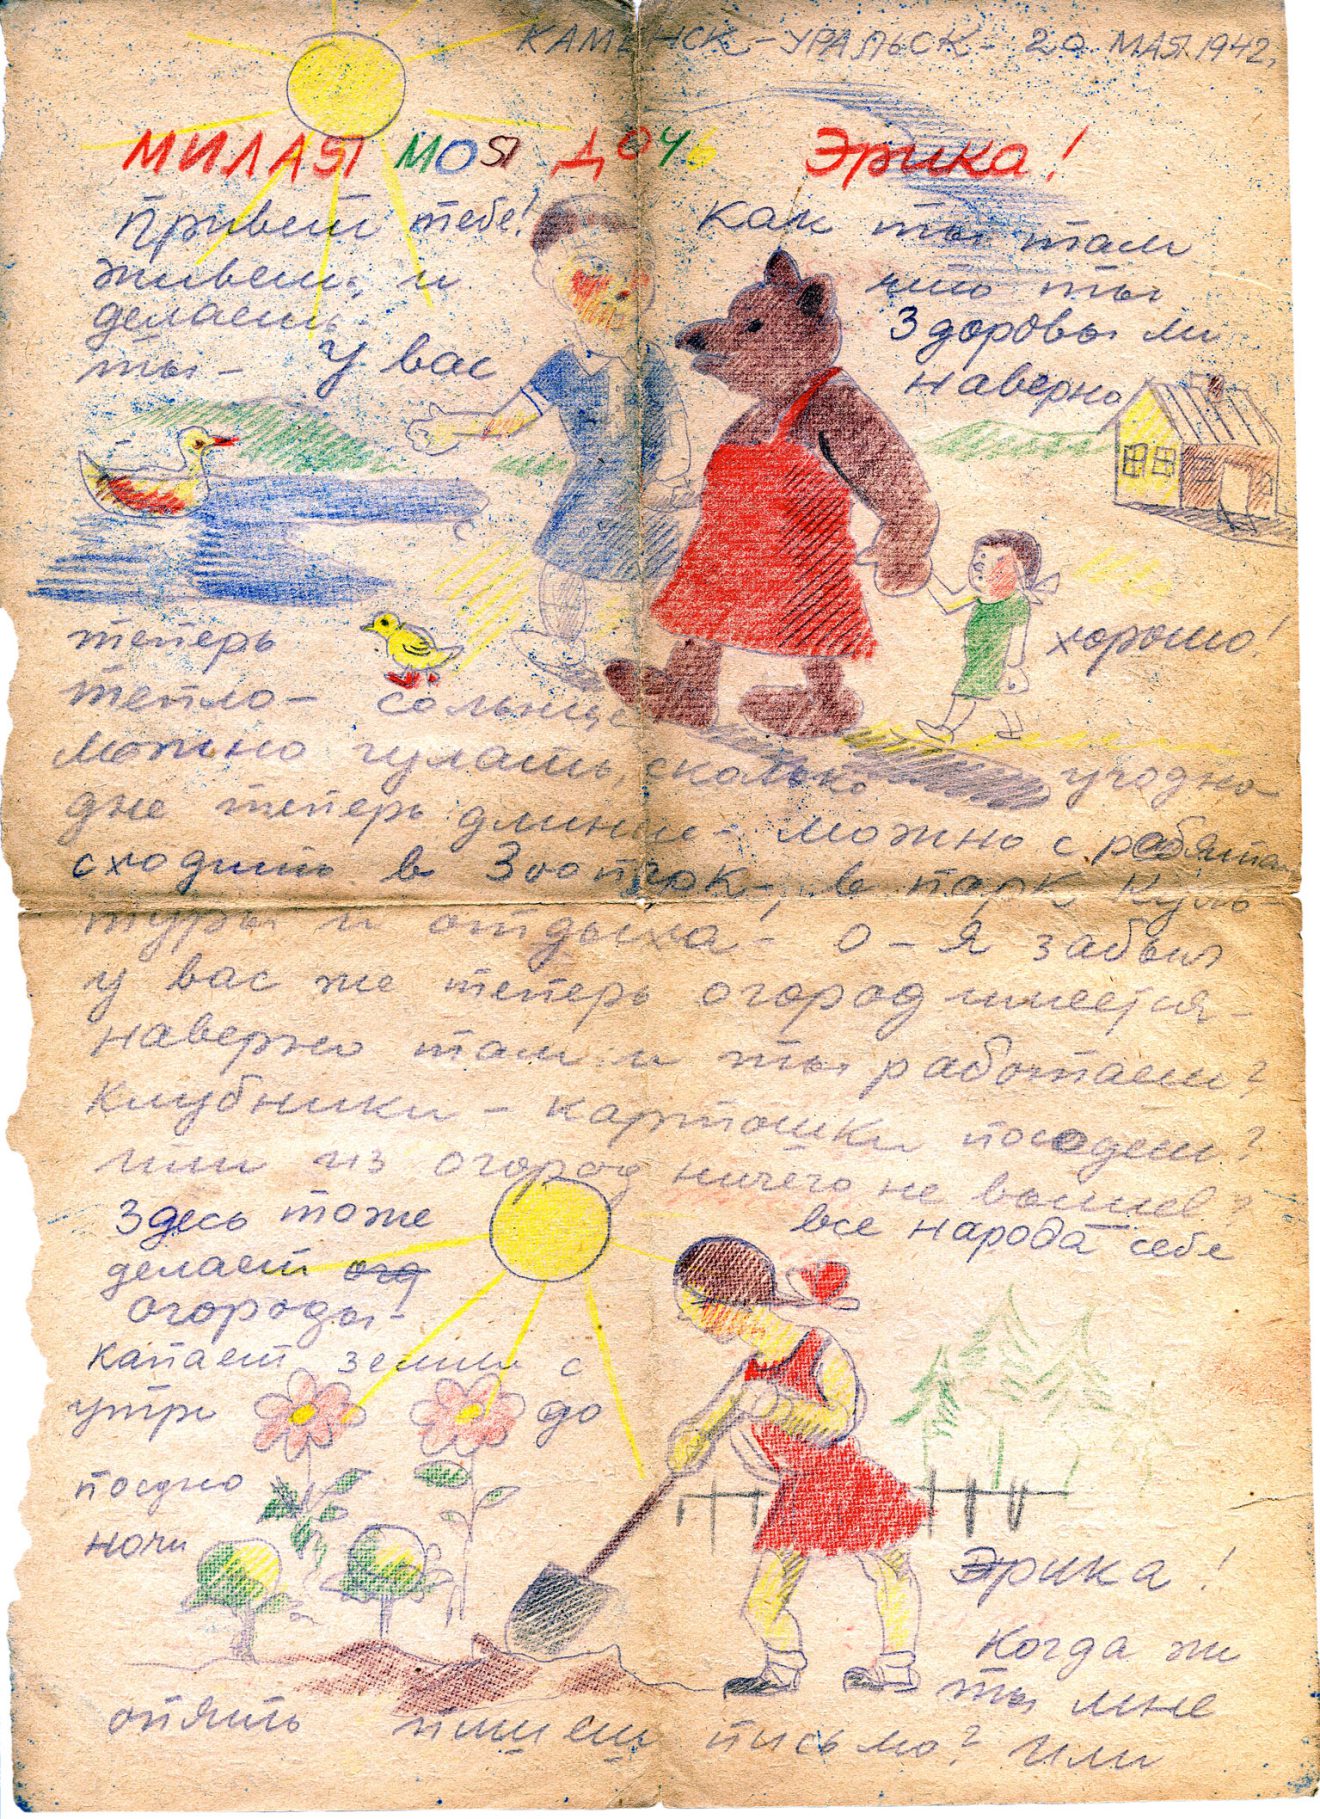 КАМЕНСК-УРАЛЬСК- 20 МАЯ.1942.
МИЛАЯ МОЯ ДОЧЬ Эрика!
Привет тебе! Как ты там
живеш, и что ты
делаеш- Здоровы ли
ты- У вас наверно
хорошо!
теперь
тепло- сольнце
можно гулать, сколько угодно
дне теперь длинне- можно с робята
сходить в Зоопарк-, в парк Куль-
туры и отдыха-, О-я забыл
у вас же теперь огород имеется-
наверно там и ты работаеш?
Клубники - картошки посодеш?
или из огород ничего не вышле?
Здесь тоже все народа себе
делает огд
огороды-
капает земли с
утри до
поздно
ночи
Эрика!
Когда же
ты мне
опять пишеш письмо? Или